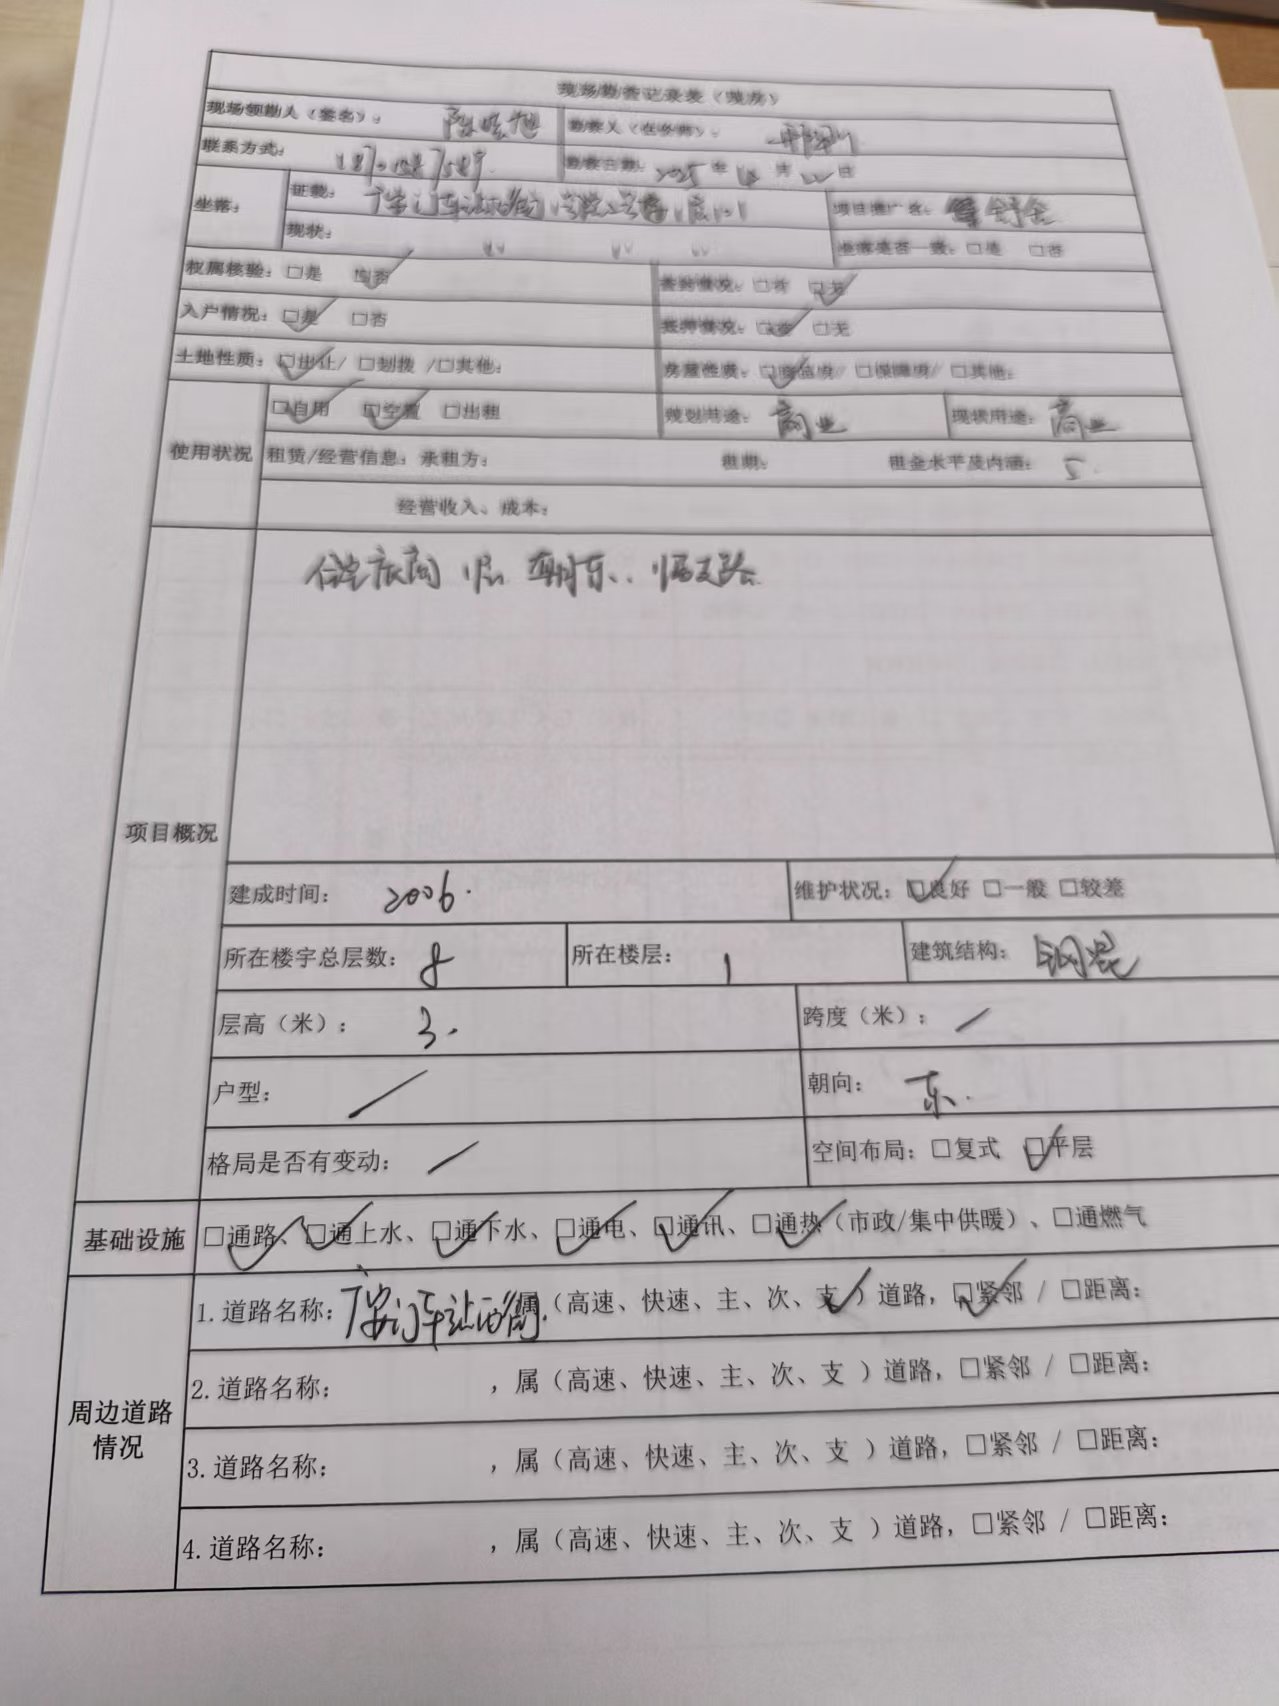 现场勘查记录表（房）
现场领勘人（签名）： 勘察人（在务师）：
联系方式： 勘察日期：2025年 月22日
坐落： 证载：广安门车站西街 1层 项目推广名：
现状： 〃 〃 〃 坐落是否一致：□是 □否
权属核验：□是 ☑否 查封情况：□有 ☑无
入户情况：☑是 □否 抵押情况：☑有 □无
土地性质：☑出让/ □划拨 /□其他： 房屋性质：☑商品房/ □保障房/ □其他：
使用状况 ☑自用 ☑空置 □出租 规划用途：商业 现状用途：商业
租赁/经营信息：承租方： 租期： 租金水平及内涵：5.
经营收入、成本：
项目概况 住宅底商 1层 朝东、临支路
建成时间：2006. 维护状况：☑良好 □一般 □较差
所在楼宇总层数：8 所在楼层：1 建筑结构：钢混
层高（米）：3. 跨度（米）：/
户型：/ 朝向：东.
格局是否有变动：/ 空间布局：□复式 ☑平层
基础设施 ☑通路、☑通上水、☑通下水、☑通电、☑通讯、☑通热（市政/集中供暖）、□通燃气
周边道路情况 1.道路名称：广安门车站西街，属（高速、快速、主、次、支✓）道路，☑紧邻 / □距离：
2.道路名称： ，属（高速、快速、主、次、支 ）道路，□紧邻 / □距离：
3.道路名称： ，属（高速、快速、主、次、支 ）道路，□紧邻 / □距离：
4.道路名称： ，属（高速、快速、主、次、支 ）道路，□紧邻 / □距离：